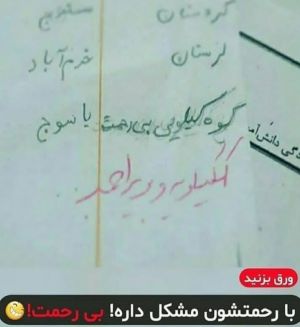 کردستان سنندج
لرستان خرم‌آباد
کوه کیلویی بی رحمت یاسوج
کهکیلویه و بویراحمد
ورق بزنید
با رحمتشون مشکل داره! بی رحمت!